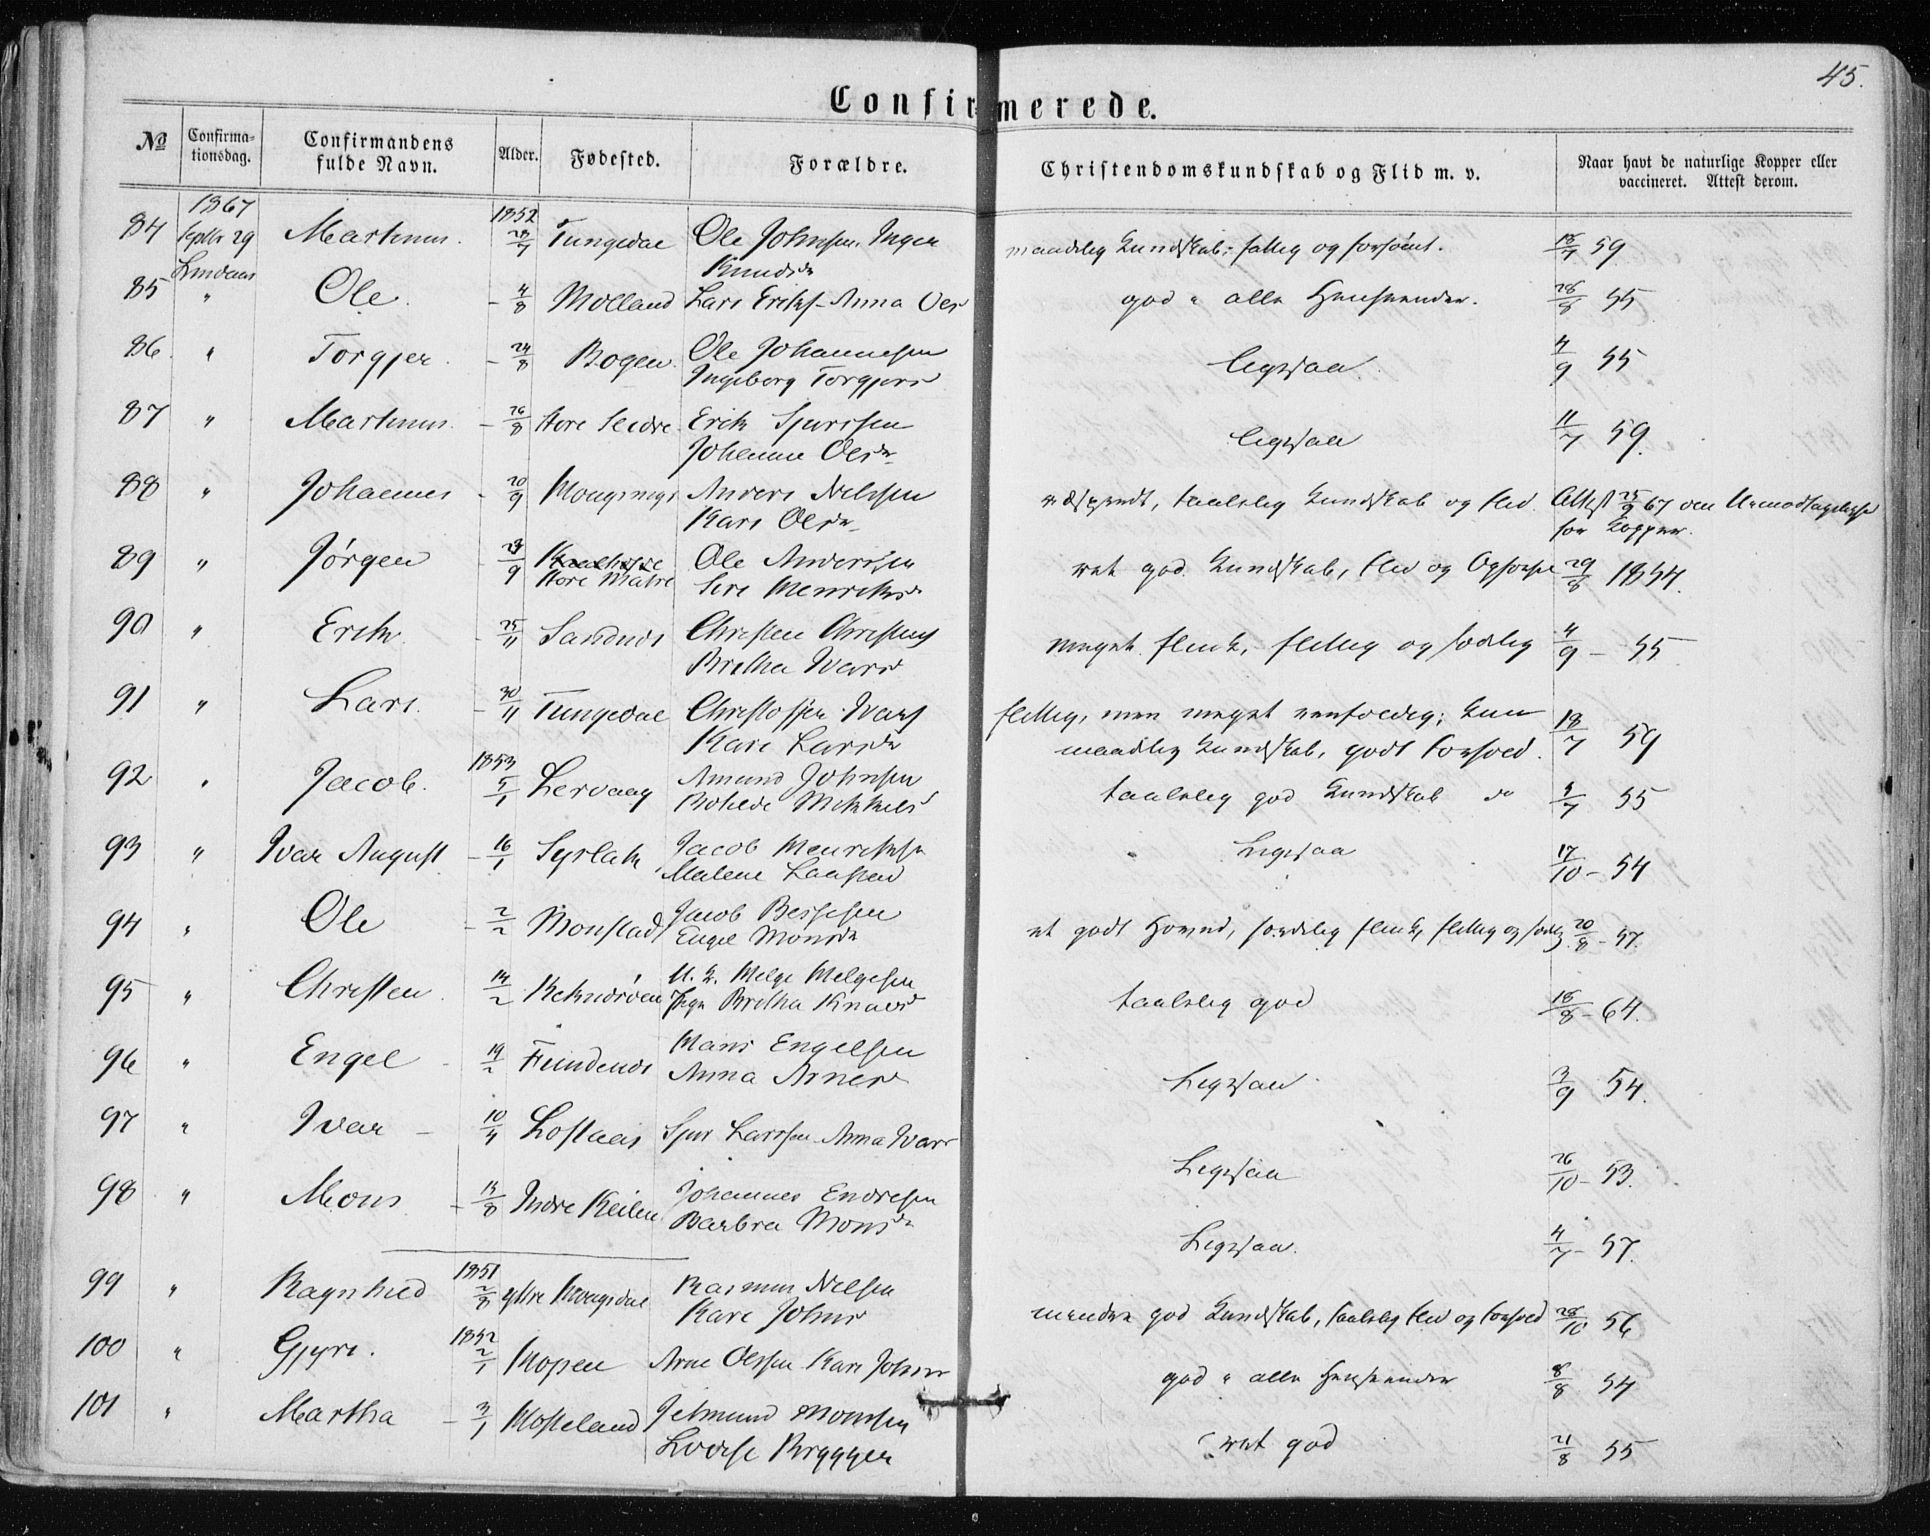 45.
Confirmerede.
No Confirmationsdag. Confirmandens fulde Navn. Alder. Fødested. Forældre. Christendomskundskab og Flid m. v. Naar havt de naturlige Kopper eller vaccineret. Attest derom.
84 1867 Septbr 29 Lindaas Martinus. 1852 28/7 Tungedal Ole Johnsen Inger Knudsdr maadelig Kundskab; fattig og forsömt. 18/7 59
85 " Ole. - 4/8 Molland Lars Eriks. Anna Olsd god i alle Henseender. 28/8 55
86. " Torgjer. - 24/8 Bogen Ole Johannesen Ingeborg Torgjersd ligesaa. 4/9 55
87 " Martinus. - 26/8 Store Seidre Erik Sjursen Johanne Olsdr ligesaa 11/7 59.
88 " Johannes - 20/9 Anders Nilssen Kari Olsdr taalelig Kundskab og Flid. Attest 25/9 67 om Uimodtagelighed for Kopper.
89 " Jörgen - 23/9 Store Matre Ole Andersen Siri Henriksdr ret god Kundskab, Flid og Opförsel 29/8 1854.
90 " Erik - 25/11 Sandnes Christen Christens Britha Ivarsd meget flink, flittig og sædelig 4/9 - 55
91 " Lars. - 30/11 Tungedal Christoffer Ivars Kari Larsdr flittig, men meget eenfoldig; kun maadelig Kundskab, godt Forhold. 18/7 59
92 " Jacob. 1853 5/1 Lervaag Amund Johnsen Bothilde Mikkelsd taalelig god Kundskab do 5/7 55
93 " Ivar August - 16/1 Syslak Jacob Henriksen Malene Laastad Ligesaa 17/10 - 54
94 " Ole - 2/2 Monstad Jacob Bessesen Engel Monsdr et godt Hoved, særdeles flink, flittig og sædelig 20/8 - 57.
95 " Christen - 14/2 U. K. Helge Helgesen Pige Britha Knudsd taalelig god 18/8 - 64.
96 " Engel - 19/2 Feindenes Hans Engelsen Anna Arnesdr Ligesaa 3/9 54.
97 " Ivar - 10/4 Loftaas Sjur Larssen Anna Ivars Ligesaa 26/10 - 53.
98 " Mons - 13/8 Indre Keilen Johannes Endresen Barbra Monsdr Ligesaa. 4/7 - 57.
99 " Ragnhild 1851 2/8 ytre Rasmus Nilsen Kari Johns mindre god Kundskab, taalelig Flid og Forhold 28/10 56
100 " Gjyri. 1852 2/1 Kopen Arne Olssen Kari Johnsd god i alle Henseender 8/8 54
101 " Martha - 3/1 Hopeland Jetmund Monssen Lovise Brygger ret god 21/8 55